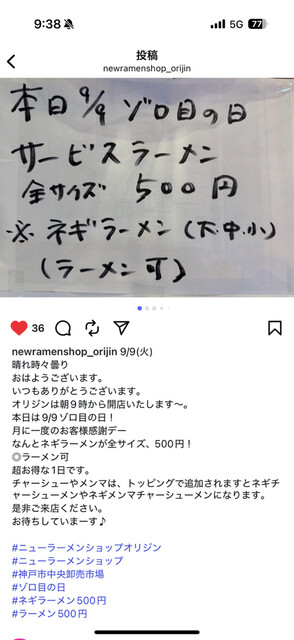 9:38
5G 77
投稿
newramenshop_orijin
本日9/9ゾロ目の日
サービスラーメン
全サイズ 500円
※ネギラーメン(大.中.小)
(ラーメン可)
36
newramenshop_orijin 9/9(火)
晴れ時々曇り
おはようございます。
いつもありがとうございます。
オリジンは朝9時から開店いたします〜。
本日は9/9ゾロ目の日!
月に一度のお客様感謝デー
なんとネギラーメンが全サイズ、500円!
◎ラーメン可
超お得な1日です。
チャーシューやメンマは、トッピングで追加されますとネギチ
ャーシューメンやネギメンマチャーシューメンになります。
是非ご来店ください。
お待ちしていまーす♪
#ニューラーメンショップオリジン
#ニューラーメンショップ
#神戸市中央卸売市場
#ゾロ目の日
#ネギラーメン500円
#ラーメン500円